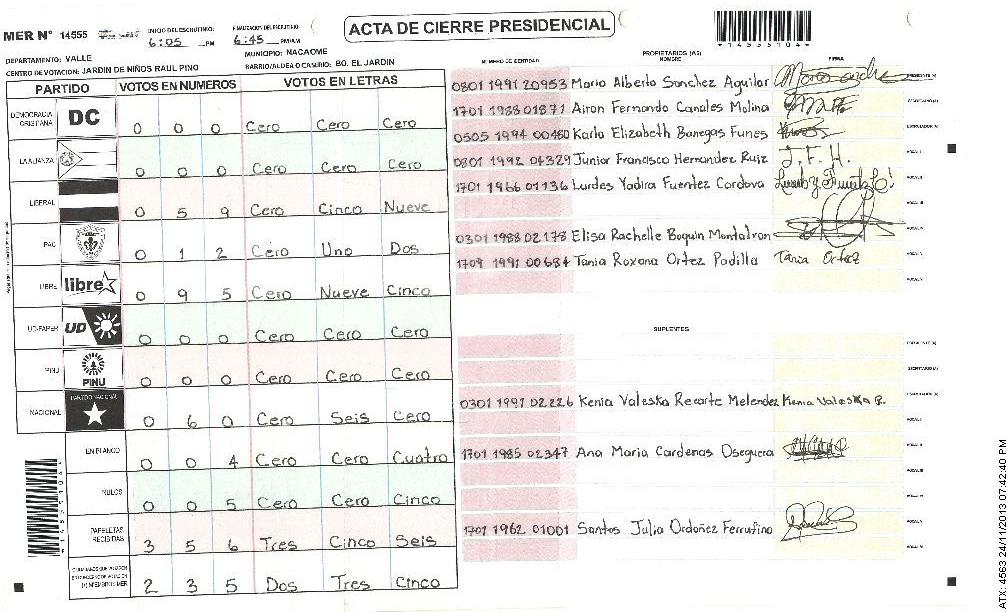 MER N° 14555
INICIO DEL ESCRUTINIO:
6:05 PM
FINALIZACION DEL ESCRUTINIO
6:45 PM/AM
ACTA DE CIERRE PRESIDENCIAL
*14555104*
DEPARTAMENTO: VALLE
MUNICIPIO: NACAOME
CENTRO DE VOTACION: JARDIN DE NIÑOS RAUL PINO
BARRIO/ALDEA O CASERIO: BO. EL JARDIN
PARTIDO VOTOS EN NUMEROS VOTOS EN LETRAS
DEMOCRACIA CRISTIANA DC 0 0 0 Cero Cero Cero
LA ALIANZA 0 0 0 Cero Cero Cero
LIBERAL 0 5 9 Cero Cinco Nueve
PAC 0 1 2 Cero Uno Dos
LIBRE libre 0 9 5 Cero Nueve Cinco
UD-FAPER UD 0 0 0 Cero Cero Cero
PINU PINU 0 0 0 Cero Cero Cero
NACIONAL PARTIDO NACIONAL 0 6 0 Cero Seis Cero
EN BLANCO 0 0 4 Cero Cero Cuatro
NULOS 0 0 5 Cero Cero Cinco
PAPELETAS RECIBIDAS 3 5 6 Tres Cinco Seis
2 3 5 Dos Tres Cinco
PROPIETARIOS (AS)
NUMERO DE IDENTIDAD NOMBRE FIRMA
0801 1991 20953 Mario Alberto Sanchez Aguilar
1701 1988 01871 Airon Fernando Canales Molina
0505 1994 00480 Karla Elizabeth Banegas Funes
0801 1992 04329 Junior Francisco Hernandez Ruiz J. F. H.
1701 1966 01136 Lurdes Yadira Fuentez Cordova
0301 1988 02178 Elisa Rachelle Boquin Montatron
1709 1991 00684 Tania Roxana Ortez Padilla Tania Ortez
SUPLENTES
0301 1991 02226 Kenia Valeska Recarte Melendez Kenia Valeska R.
1701 1985 02347 Ana Maria Cardenas Oseguera
1701 1962 01001 Santos Julia Ordoñez Ferrufino
*14555104*
ATX: 4563 24/11/2013 07:42:40 PM